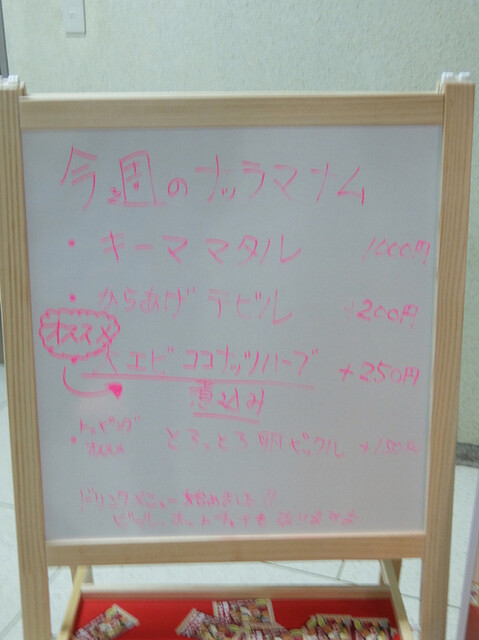 今週のナッラマナム
・キーママタル 1000円
・からあげデビル +200円
オススメ
エビココナッツハーブ +250円
煮込み
・トッピング
オススメ
とろっとろ卵ピックル +150円
ドリンクメニュー始めました!!
ビール、ホット